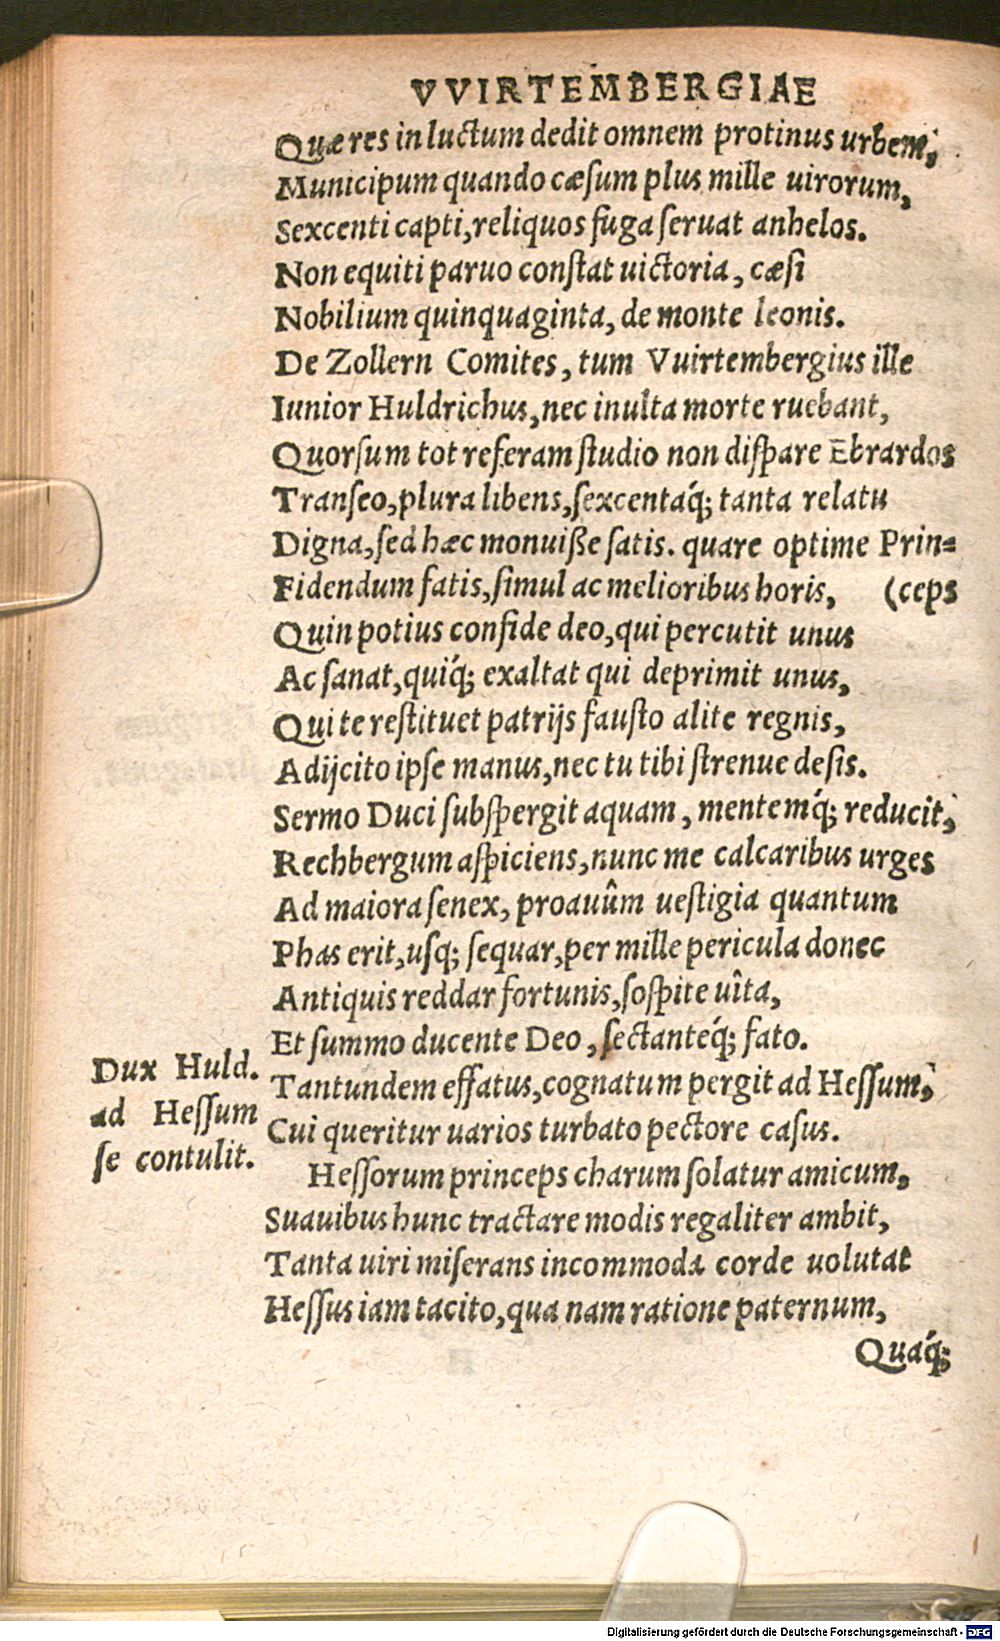 VVIRTEMBERGIAE
Quæ res in luctum dedit omnem protinus urbem,
Municipum quando cæsum plus mille uirorum,
Sexcenti capti, reliquos fuga seruat anhelos.
Non equiti paruo constat uictoria, cæsi
Nobilium quinquaginta, de monte leonis.
De Zollern Comites, tum Vuirtembergius ille
Iunior Huldrichus, nec inulta morte ruebant,
Quorsum tot referam studio non dispare Ebrardos
Transeo, plura libens, sexcentaq́; tanta relatu
Digna, sed hæc monuiße satis. quare optime Prin=
Fidendum fatis, simul ac melioribus horis, (ceps
Quin potius confide deo, qui percutit unus
Ac sanat, quiq́; exaltat qui deprimit unus,
Qui te restituet patrijs fausto alite regnis,
Adijcito ipse manus, nec tu tibi strenue desis.
Sermo Duci subspergit aquam, mentemq́; reducit,
Rechbergum aspiciens, nunc me calcaribus urges
Ad maiora senex, proauûm uestigia quantum
Phas erit, usq; sequar, per mille pericula donec
Antiquis reddar fortunis, sospite uîta,
Et summo ducente Deo, sectanteq́; fato.
Tantundem effatus, cognatum pergit ad Hessum,
Cui queritur uarios turbato pectore casus.
Hessorum princeps charum solatur amicum,
Suauibus hunc tractare modis regaliter ambit,
Tanta uiri miserans incommoda corde uolutat
Hessus iam tacito, qua nam ratione paternum,
Quaq́;
Dux Huld.
ad Hessum
se contulit.
Digitalisierung gefördert durch die Deutsche Forschungsgemeinschaft - DFG